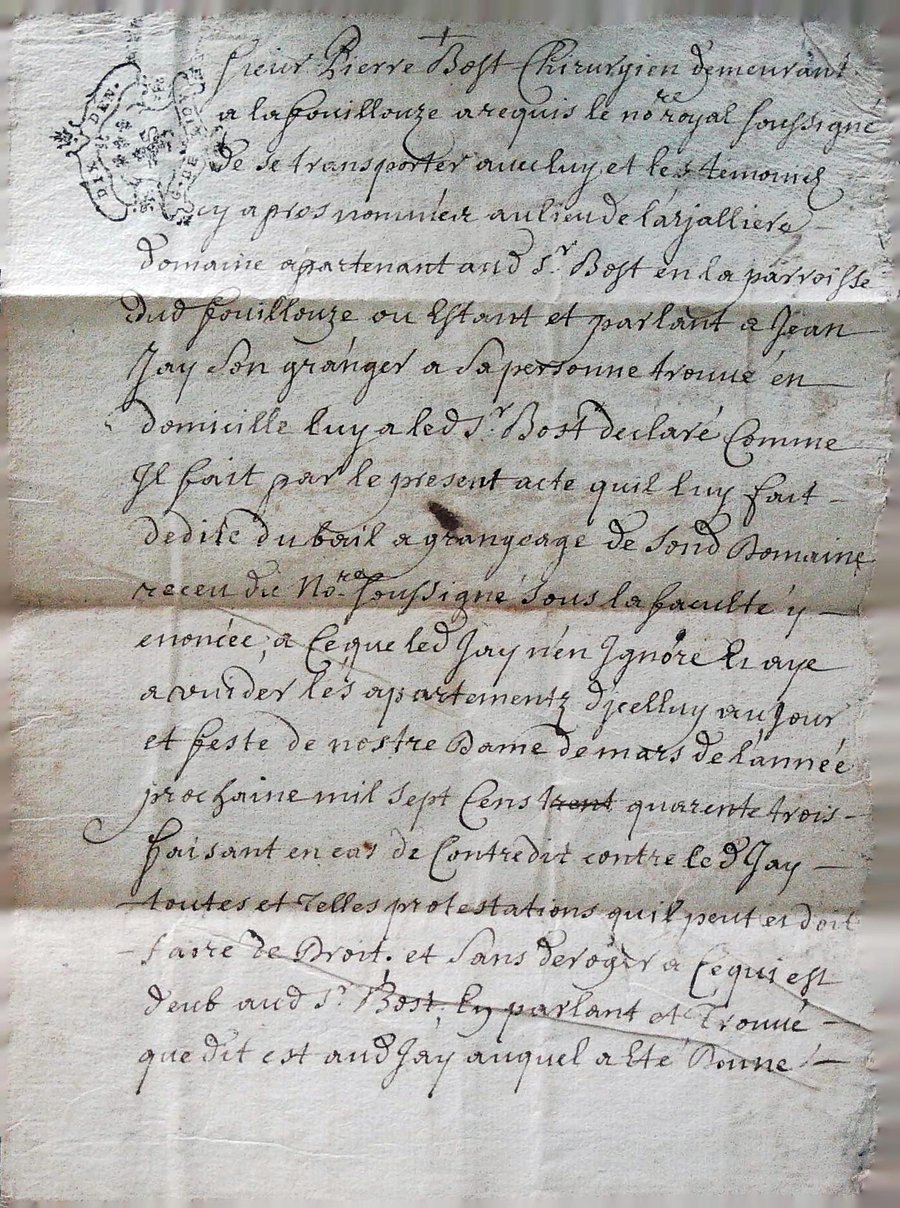 DIX DEN.
G. DE
sieur Pierre Bost Chirurgien demeurant
a la fouillouze a requis le no.re royal soussigné
de se transporter avec luy et les temoins
cy apres nommez au lieu de larjalliere
domaine apartenant aud Sr. Bost en la parroisse
dud fouillouze ou Estant et parlant a Jean
Jay son granger a sa personne trouvé én
domicille luy a led Sr. Bost declaré Comme
Jl fait par le present acte quil luy fait
dedite du bail a grangeage de sond Domaine
receu du No.re soussigné sous la faculté y
enoncée, a Ceque led Jay n'en Jgnore Et aye
a vuider les apartementz d'jcelluy au jour
et feste de nostre Dame de mars de l'année
prochaine mil sept Cens trent quarente trois
faisant en cas de Contredit contre led Jay
toutes et Telles protestations quil peut et doit
faire de Droit. et sans deroger a Cequi est
deub aud Sr. Bost, En parlant et Trouvé
que dit est aud Jay auquel a Eté Donné